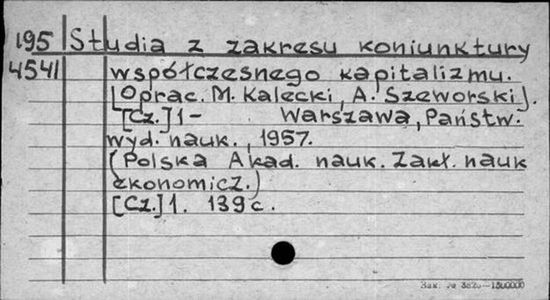 195 Studia z zakresu koniunktury
4541 współczesnego kapitalizmu.
[Oprac. M. Kalecki, A. Szeworski].
[Cz.] 1- Warszawa, Państw.
wyd. nauk., 1957.
(Polska Akad. nauk. Zakł. nauk
ekonomicz.)
[Cz.] 1. 139 c.